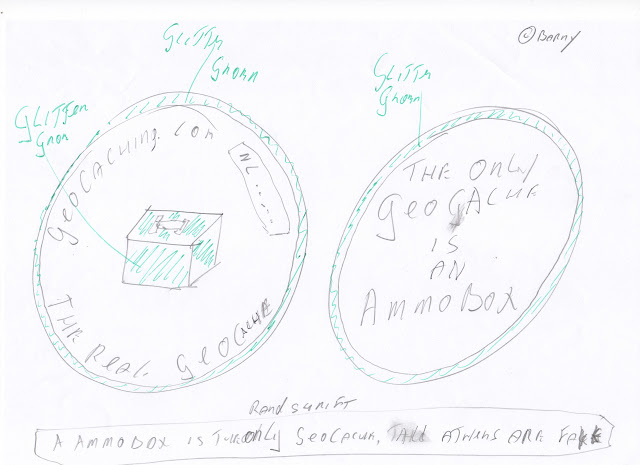 © Berny
GLITTER
GROEN
GLITTER
GROEN
GLITTER
GROEN
GEOCACHING.COM
NL.....
THE REAL GEOCACHE
THE ONLY
GEOCACHE
IS
AN
AMMOBOX
RANDSCHRIFT
A AMMOBOX IS THE only GEOCACHE, ARE